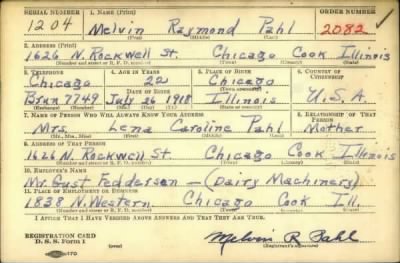 SERIAL NUMBER 1. NAME (Print) ORDER NUMBER
1204 Melvin Raymond Pahl 2082
(First) (Middle) (Last)
2. ADDRESS (Print)
1626 N. Rockwell St. Chicago Cook Illinois
(Number and street or R. F. D. number) (Town) (County) (State)
3. TELEPHONE 4. AGE IN YEARS 5. PLACE OF BIRTH 6. COUNTRY OF CITIZENSHIP
Chicago 22 Chicago
DATE OF BIRTH
Brun 7749 July 26 1918 Illinois U.S.A.
(Exchange) (Number) (Mo.) (Day) (Yr.) (State or country)
7. NAME OF PERSON WHO WILL ALWAYS KNOW YOUR ADDRESS 8. RELATIONSHIP OF THAT PERSON
Mrs. Lena Caroline Pahl Mother
(Mr., Mrs., Miss) (First) (Middle) (Last)
9. ADDRESS OF THAT PERSON
1626 N. Rockwell St. Chicago Cook Illinois
(Number and street or R. F. D. number) (Town) (County) (State)
10. EMPLOYER'S NAME
Mr. Gust Feddersen - (Dairy Machinery)
11. PLACE OF EMPLOYMENT OR BUSINESS
1838 N. Western. Chicago Cook Ill.
(Number and street or R. F. D. number) (Town) (County) (State)
I AFFIRM THAT I HAVE VERIFIED ABOVE ANSWERS AND THAT THEY ARE TRUE.
REGISTRATION CARD
D. S. S. Form 1 (over) Melvin R. Pahl
(Registrant's signature)